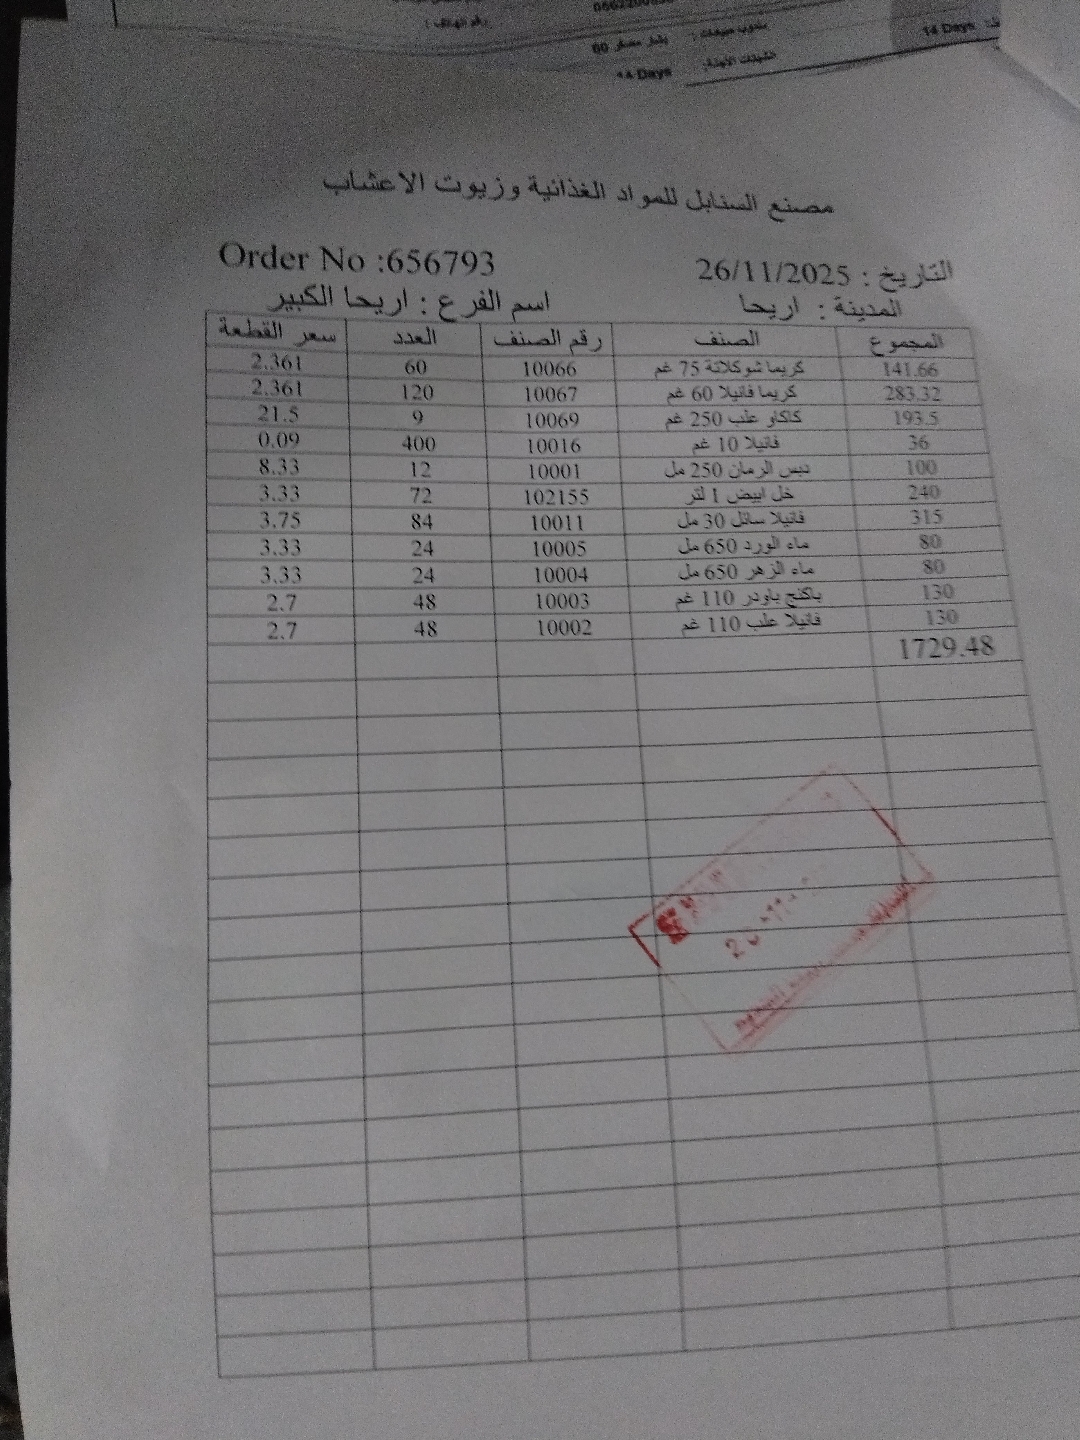 رقم الهاتف :
مندوب مبيعات :
14 Days
14 Days
مصنع السنابل للمواد الغذائية وزيوت الاعشاب
التاريخ : 26/11/2025 Order No :656793
المدينة : اريحا اسم الفرع : اريحا الكبير
المجموع الصنف رقم الصنف العدد سعر القطعة
141.66 كريما شوكلاتة 75 غم 10066 60 2.361
283.32 كريما فانيلا 60 غم 10067 120 2.361
193.5 كاكاو علب 250 غم 10069 9 21.5
36 فانيلا 10 غم 10016 400 0.09
100 دبس الرمان 250 مل 10001 12 8.33
240 خل ابيض 1 لتر 102155 72 3.33
315 فانيلا سائل 30 مل 10011 84 3.75
80 ماء الورد 650 مل 10005 24 3.33
80 ماء الزهر 650 مل 10004 24 3.33
130 باكنج باودر 110 غم 10003 48 2.7
130 فانيلا علب 110 غم 10002 48 2.7
1729.48